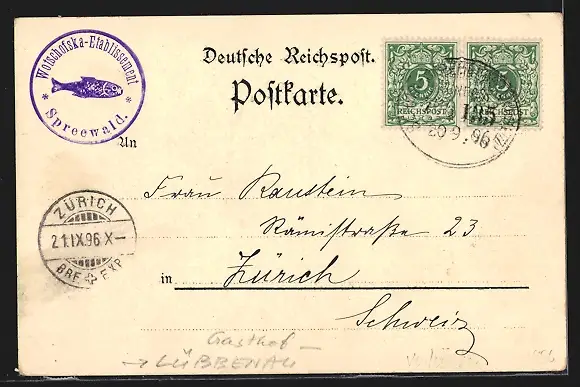 Wotschofska-Etablissement
* Spreewald. *
Deutsche Reichspost.
Postkarte.
5 5
REICHSPOST REICHSPOST
185
20 9 . 96
An
Frau Raustein
Rämistraße 23
in Zürich
Schweiz
ZÜRICH
21.IX.96 X–
BRF. EXP.
Gasthof –
→ LÜBBENAU